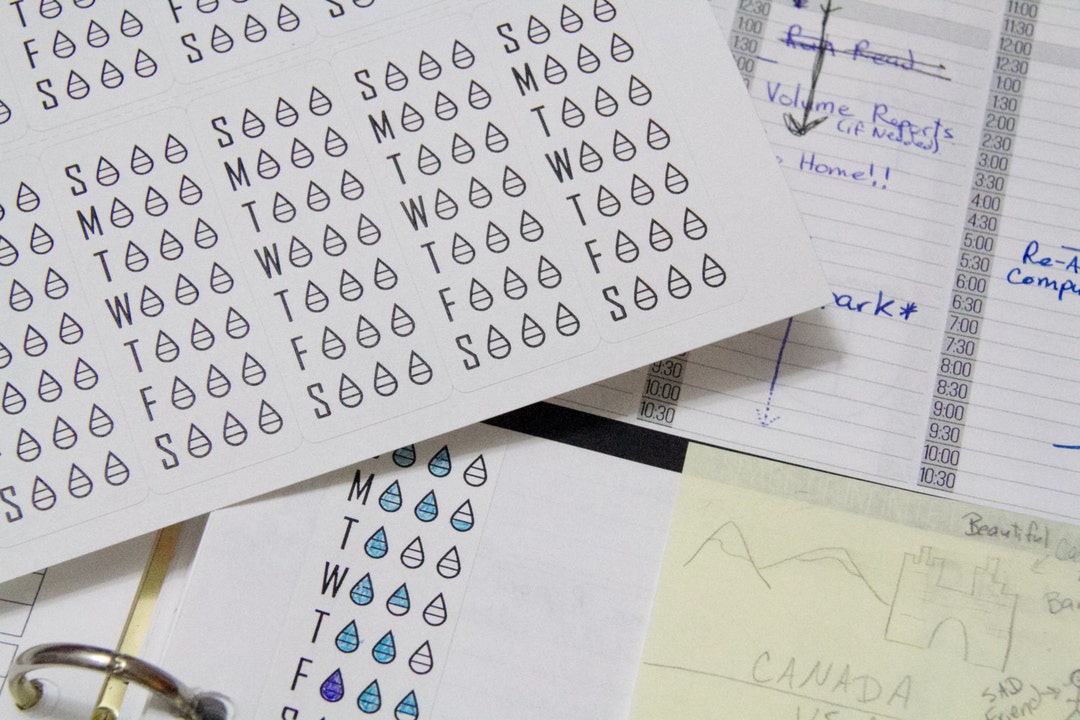 T
F
S
F
S
S
S
M
T
W
T
F
S
S
M
T
W
T
F
S
S
M
T
W
T
F
S
S
M
T
W
T
F
S
S
M
T
W
T
F
12:30
1:00
1:30
Read
Volume Reports
(if Needed)
Home!!
9:30
10:00
10:30
11:00
11:30
12:00
12:30
1:00
1:30
2:00
2:30
3:00
3:30
4:00
4:30
5:00
5:30
6:00
6:30
7:00
7:30
8:00
8:30
9:00
9:30
10:00
10:30
Beautiful
CANADA
SAD